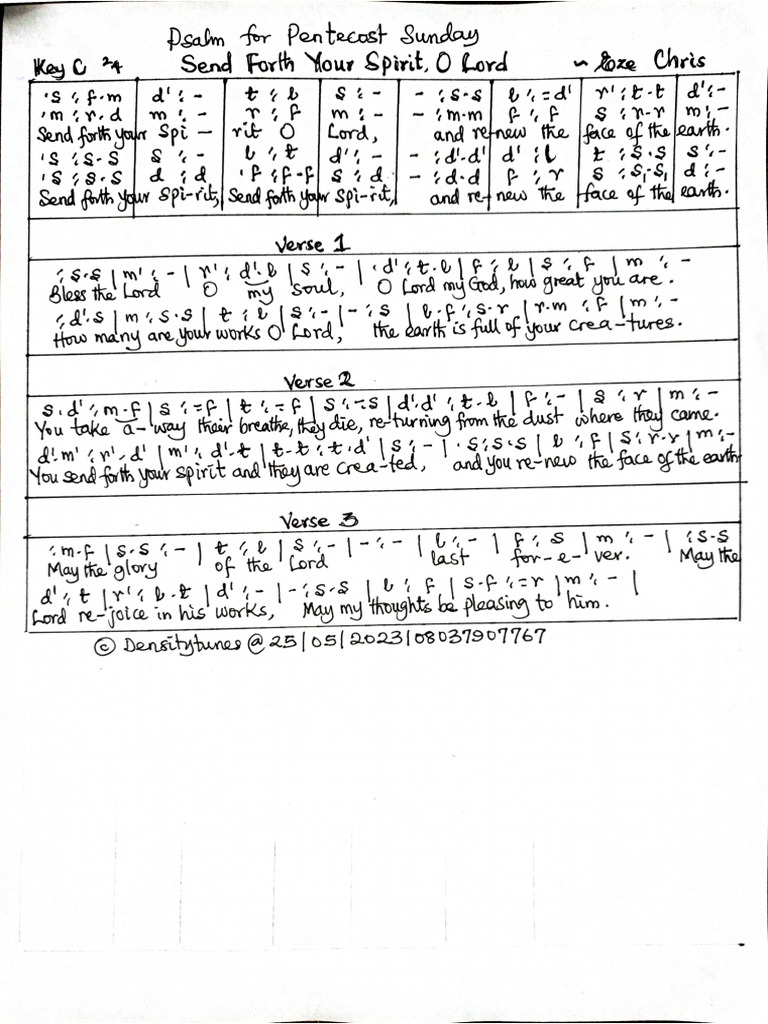 Psalm for Pentecost Sunday
Key C 2/4 Send Forth Your Spirit, O Lord ~ Eze Chris
.s : f.m | d' : - | t : l | s : - | - : s.s | l : = d' | r' : t.t | d' : -
.m : r.d | m : - | r : f | m : - | - : m.m | f : f | s : r.r | m : -
Send forth your Spi - rit O Lord, and re-new the face of the earth.
's : s.s | s : - | l : t | d' : - | - : d'.d' | d' : l | t : s.s | s : -
's : s.s | d : d | .f : f-f | s : d | - : d.d | f : r | s : s₁.s₁ | d : -
Send forth your Spi-rit, Send forth your Spi-rit, and re-new the face of the earth.
Verse 1
: s.s | m' : - | r' : d'.l | s : - | . d' : t.l | f : l | s : f | m : -
Bless the Lord O my soul, O Lord my God, how great you are.
: d'.s | m : s.s | t : l | s : - | - : s | l.f : s.r | r.m : f | m : -
How many are your works O Lord, the earth is full of your crea-tures.
Verse 2
s.d' : m.f | s : = f | t : = f | s : = s | d'.d' : t.l | f : - | s : r | m : -
You take a-way their breathe, they die, re-turning from the dust where they came.
d'.m' : r'.d' | m' : d'.t | t.t : t.d' | s : - | .s : s.s | l : f | s : r.r | m : -
You send forth your spirit and they are crea-ted, and you re-new the face of the earth
Verse 3
: m.f | s.s : - | t : l | s : - | - : - | l : - | f : s | m : - | : s.s
May the glory of the Lord last for-e-ver. May the
d' : t | r' : l.t | d' : - | - : s.s | l : f | s.f : = r | m : - |
Lord re-joice in his works, May my thoughts be pleasing to him.
© Densitytunes @ 25/05/2023/08037907767